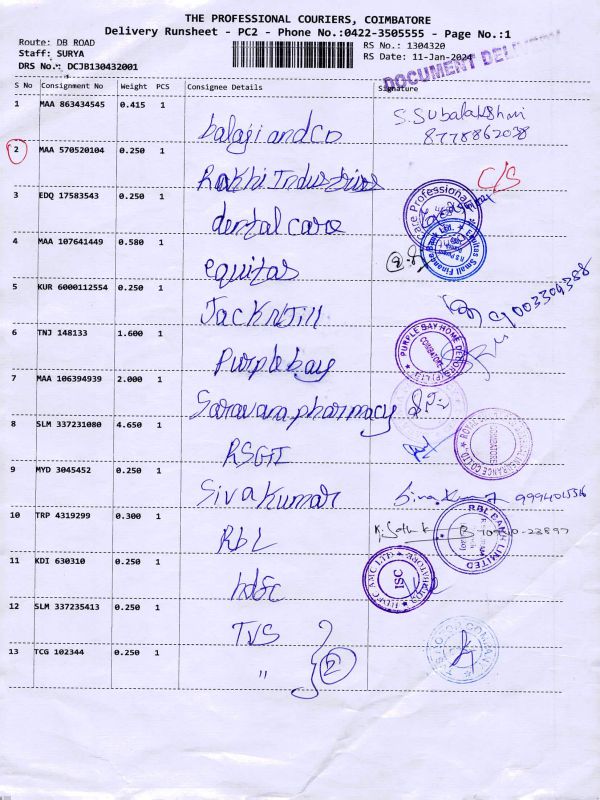 THE PROFESSIONAL COURIERS, COIMBATORE
Delivery Runsheet - PC2 - Phone No.:0422-3505555 - Page No.:1
Route: DB ROAD
RS No.: 1304320
Staff: SURYA
RS Date: 11-Jan-2024
DRS No.: DCJB130432001
DOCUMENT DELIVERY
S No Consignment No Weight PCS Consignee Details Signature
1 MAA 863434545 0.415 1 balaji and co S. Subalakshmi
8778862038
2 MAA 570520104 0.250 1 Rakhi Industries C/S
3 EDQ 17583543 0.250 1 dental care
4 MAA 107641449 0.580 1 equitas
5 KUR 6000112554 0.250 1 Jack n Jill 9003304388
6 TNJ 148133 1.600 1 Purple bay
PURPLE BAY HOME DECORS (P) LTD
COIMBATORE
7 MAA 106394939 2.000 1 Saravana pharmacy
8 SLM 337231080 4.650 1 RSGI
9 MYD 3045452 0.250 1 Siva Kumar Siva Kumar
10 TRP 4319299 0.300 1 RBL
RBL BANK LIMITED
11 KDI 630310 0.250 1 hdfc
HDFC AMC LTD
ISC
12 SLM 337235413 0.250 1 TVS
13 TCG 102344 0.250 1 " 2